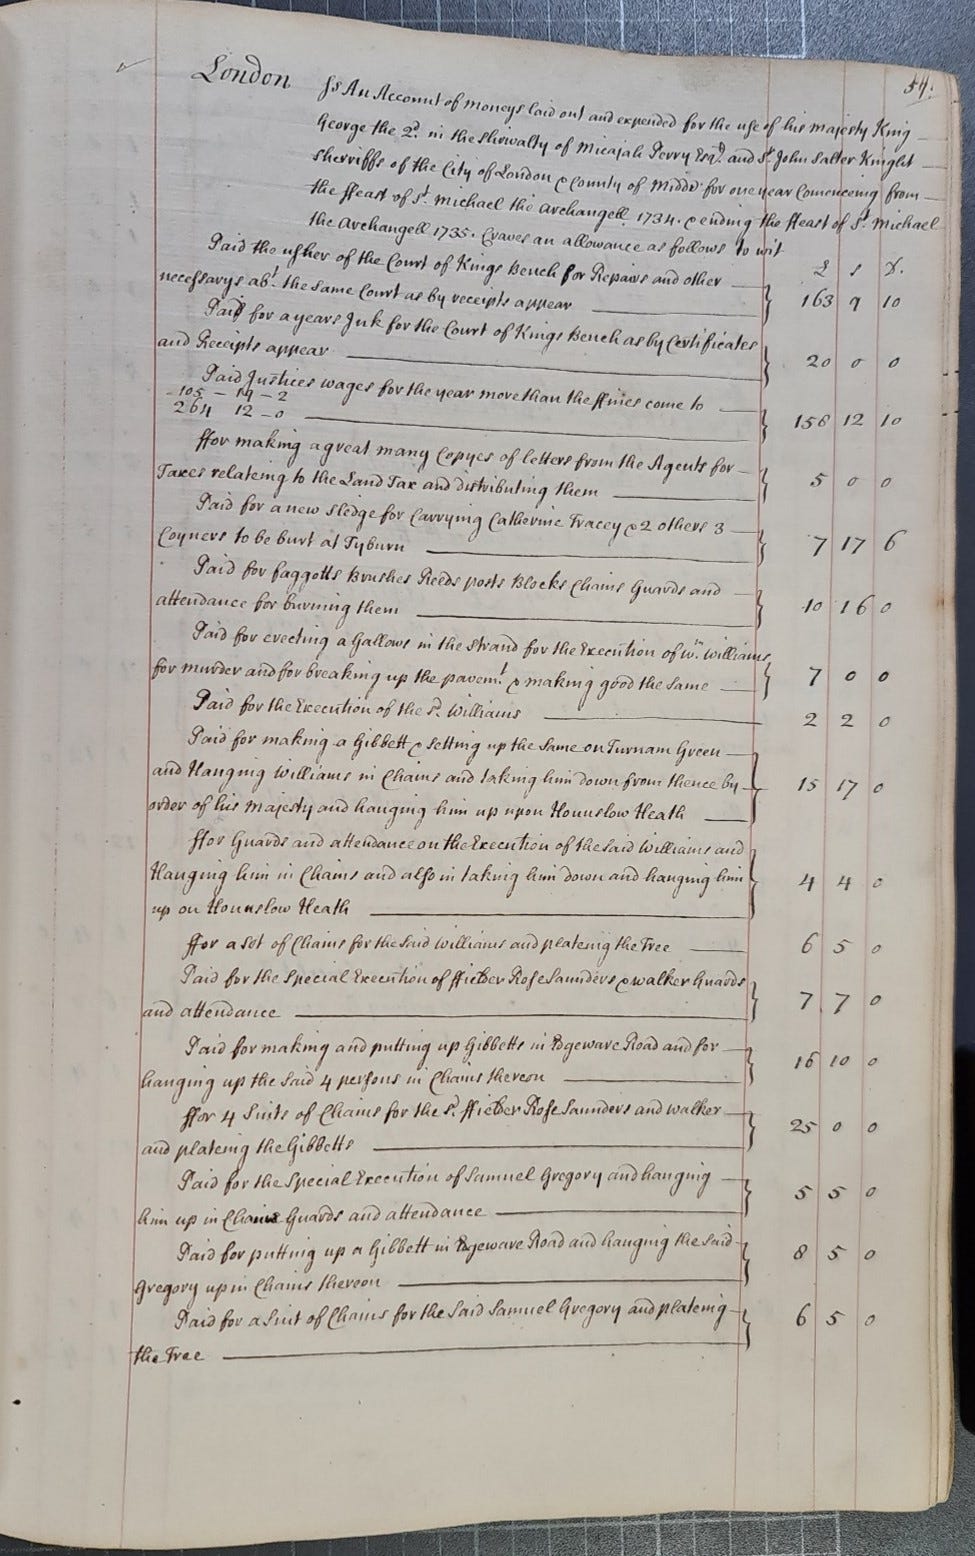 54.
London ss An Account of moneys laid out and expended for the use of his majesty King
George the 2d. in the shrivalty of Micajah Perry Esqr. and Sr. John Salter Knight
sherriffs of the City of London & County of Middx for one year Comenceing from
the ffeast of St. Michael the Archangell 1734. & ending the ffeast of St. Michael
the Archangell 1735. Craves an allowance as follows to wit
£ s D.
Paid the usher of the Court of Kings Bench for Repairs and other
necessarys abt. the same Court as by receipts appear 163 9 10
Paid for a years Ink for the Court of Kings Bench as by Certificates
and Receipts appear 20 0 0
Paid Justices wages for the year more than the ffines come to
105 - 19 - 2
264 12 - 0 158 12 10
ffor making a great many Copyes of letters from the Agents for
Taxes relateing to the Land Tax and distributing them 5 0 0
Paid for a new sledge for Carrying Catherine Tracey & 2 others 3
Coyners to be burt at Tyburn 7 17 6
Paid for faggotts Brushes Reeds posts Blocks Chains Guards and
attendance for burning them 10 16 0
Paid for erecting a Gallows in the Strand for the Execution of Wm. Williams
for murder and for breaking up the pavemt. & making good the same 7 0 0
Paid for the Execution of the sd. Williams 2 2 0
Paid for making a Gibbett & setting up the same on Turnam Green
and Hanging Williams in Chains and taking him down from thence by
order of his Majesty and hanging him up upon Hounslow Heath 15 17 0
ffor Guards and attendance on the Execution of the said Williams and
Hanging him in Chains and also in taking him down and hanging him
up on Hounslow Heath 4 4 0
ffor a set of Chains for the said Williams and plateing the Tree 6 5 0
Paid for the special Execution of ffieber Rose Saunders & walker Guards
and attendance 7 7 0
Paid for making and putting up Gibbetts in Edgeware Road and for
hanging up the said 4 persons in Chains thereon 16 10 0
ffor 4 Suits of Chains for the sd. ffieber Rose Saunders and walker
and plateing the Gibbetts 25 0 0
Paid for the special Execution of Samuel Gregory and hanging
him up in Chains Guards and attendance 5 5 0
Paid for putting up a Gibbett in Edgeware Road and hanging the said
Gregory up in Chains thereon 8 5 0
Paid for a Suit of Chains for the said Samuel Gregory and plateing
the Tree 6 5 0